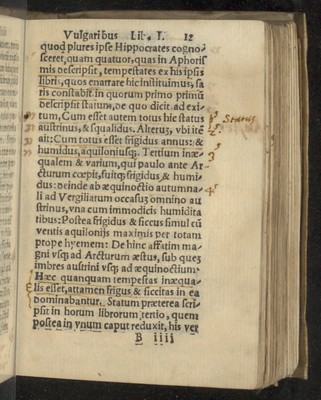 Vulgaribus Lib. I. 12
quod plures ipse Hippocrates cogno-
sceret, quam quatuor, quas in Aphoris
mis descripsit, tempestates ex his ipsis
libris, quos enarrare hic instituimus, sa
tis constabit. in quorum primo primū
descripsit statum, de quo dicit ad exi-
tum, Cum esset autem totus hic status
austrinus, & squalidus. Alterus, vbi ite
ait: Cum totus esset frigidus annus: &
humidus, aquiloniusq;. Tertium inæ-
qualem & varium, qui paulo ante Ar-
cturum cœpit, fuitq; frigidus & humi
dus: deinde ab æquinoctio autumna-
li ad Vergiliarum occasuȝ omnino au
strinus, vna cum immodicis humidita
tibus: Postea frigidus & siccus simul cū
ventis aquilonijs maximis per totam
prope hyemem: De hinc affatim ma-
gni vsq; ad Arcturum æstus, sub queȝ
imbres austrini vsq; ad æquinoctium.
Hæc quanquam tempestas inæqua-
lis esset, attamen frigus & siccitas in ea
dominabantur. Statum præterea scri-
psit in horum librorum tertio, quem
postea in vnum caput reduxit, his ver
B iiii
Status
2
3
4